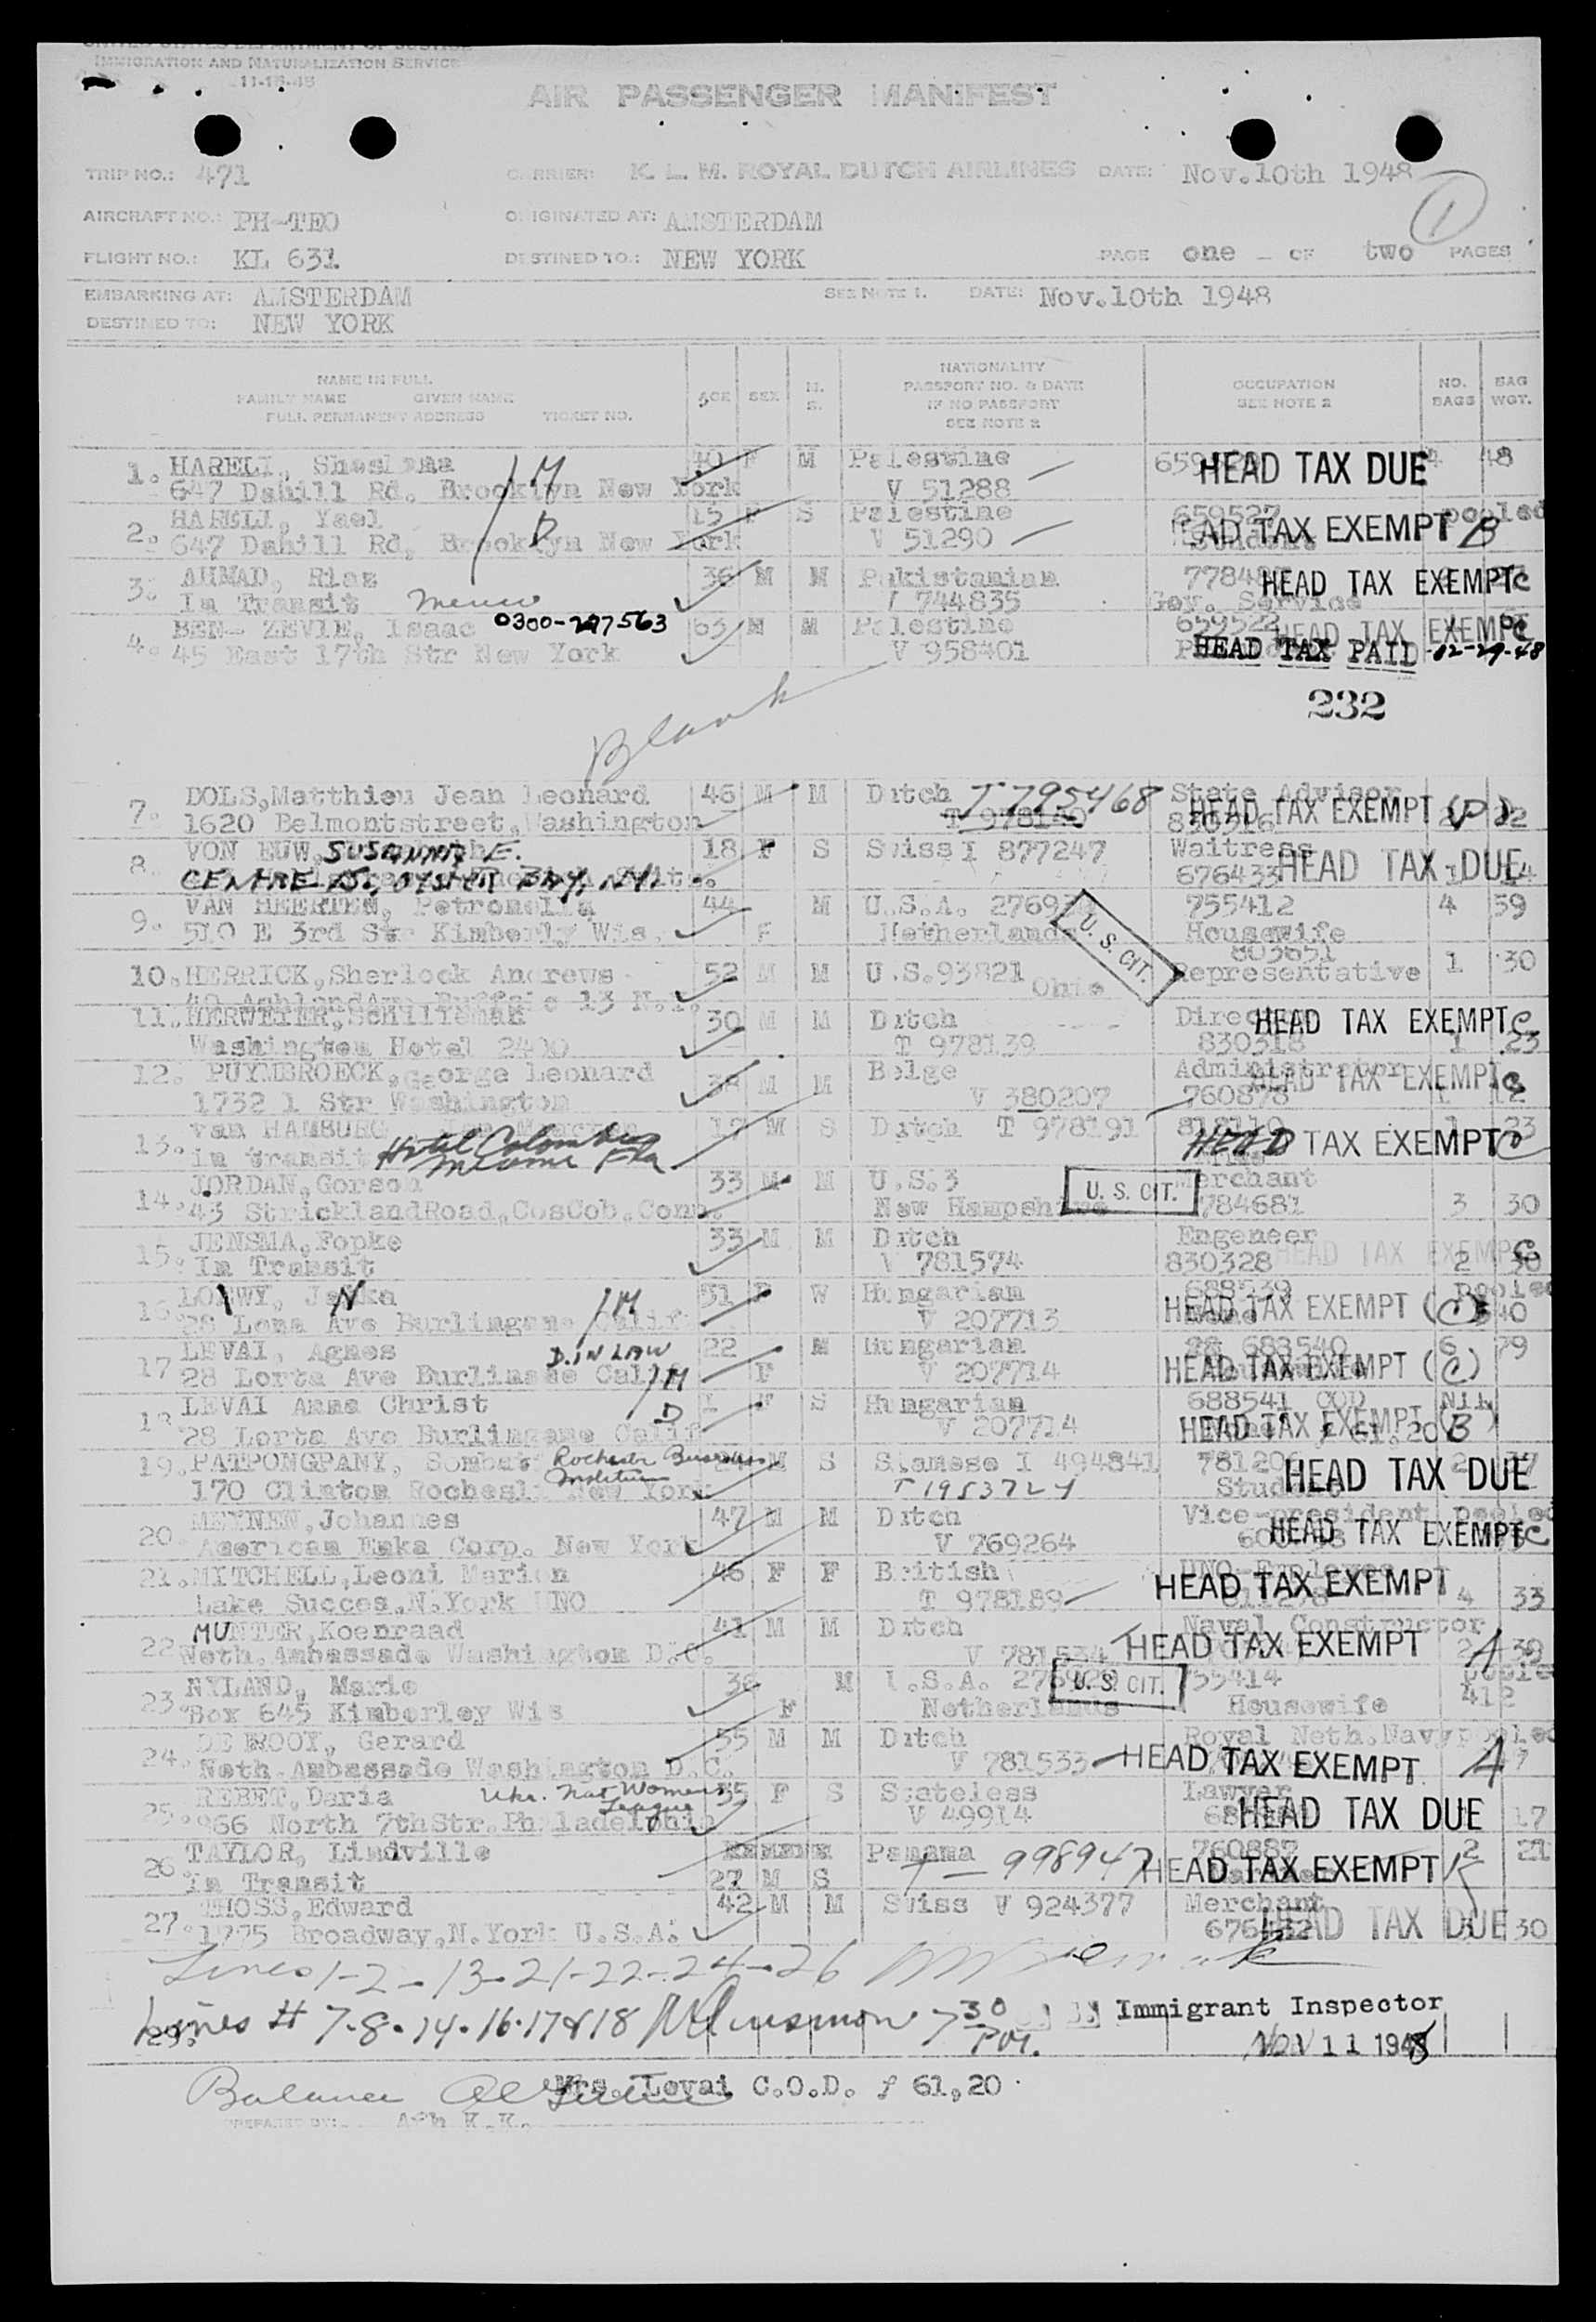 UNITED STATES DEPARTMENT OF JUSTICE
IMMIGRATION AND NATURALIZATION SERVICE
11-15-45
AIR PASSENGER MANIFEST
TRIP NO.: 471 CARRIER: K. L. M. ROYAL DUTCH AIRLINES DATE: Nov.10th 1948
1
AIRCRAFT NO.: PH-TEO ORIGINATED AT: AMSTERDAM
FLIGHT NO.: KL 631 DESTINED TO.: NEW YORK PAGE one - OF two PAGES
EMBARKING AT: AMSTERDAM SEE NOTE 1. DATE: Nov.10th 1948
DESTINED TO: NEW YORK
NAME IN FULL
FAMILY NAME GIVEN NAME
FULL PERMANENT ADDRESS TICKET NO.
AGE SEX M. S.
NATIONALITY
PASSPORT NO. & DATE
IF NO PASSPORT
SEE NOTE 2
OCCUPATION
SEE NOTE 2
NO. BAGS
BAG WGT.
1. HARELI, 40 F M Palestine HEAD TAX DUE 4 48
647 Dahill Rd. Brooklyn New York V 51288
M
2. HARELI, Yael 15 F S Palestine 659527 pooled
647 Dahill Rd. Brooklyn New York V 51290 Student HEAD TAX EXEMPT B
D
3. AHMAD, Rias 36 M M Pakistanian HEAD TAX EXEMPT C
In Transit 744835 Gov. Service
4. BEN- ZEVIE, Isaac 0300-297563 63 M M Palestine 659522 HEAD TAX EXEMPT C
45 East 17th Str New York V 958401 HEAD TAX PAID -12-29-48
232
Blank
7. DOLS,Matthieu Jean Leonard 46 M M Dutch T 795468 State Advisor
1620 Belmontstreet,Washington T 978140 830316 HEAD TAX EXEMPT (D)
8. VON EUW, SUSANNA E. 18 F S Swiss I 877247 Waitress
CENTRE IS., OYSTER BAY, N.Y. 676433 HEAD TAX DUE 1 14
9. VAN HEERTEN, Petronella 44 M U.S.A. 755412 4 59
510 E 3rd Str Kimberly Wis. F Netherlands Housewife
U. S. CIT.
10. HERRICK,Sherlock Andrews 52 M M U.S.93821 Ohio 803651 Representative 1 30
40 AshlandAve Buffalo 13 N.Y.
11. 30 M M Dutch HEAD TAX EXEMPT C
Washington Hotel 2400 T 978139 830318 1 23
12. PUYMBROECK, George Leonard M M Belge Administrator
1732 1 Str Washington V 380207 760878 HEAD TAX EXEMPT C 12
13. van HAMBURG 17 M S Dutch T 978191 1 23
in transit Hotel Colombus HEAD TAX EXEMPT C
14. JORDAN,Gorson 33 M M U.S.3 Merchant
43 StricklandRoad,CosCob,Conn. New Hampshire U. S. CIT. 784681 3 30
15. JENSMA,Fopke 33 M M Dutch Engeneer
In Transit V 781574 830328 HEAD TAX EXEMPT C 2 30
16. LOEWY, 51 F W Hungarian 688539 pooled
28 Lona Ave Burlingame Calif V 207713 HEAD TAX EXEMPT (C) 40
M
17 LEVAI, Agnes D. IN LAW 22 M Hungarian 688540 6 79
28 Lorta Ave Burlingame Calif F V 207714 HEAD TAX EXEMPT (C)
M
18 LEVAI Anna Christ 1 F S Hungarian 688541 COD Nil
28 Lorta Ave Burlingame Calif V 207714 HEAD TAX EXEMPT (B)
D
19. PATPONGPANY, Rochester Business Institute M S Siamese I 494841 2 37
170 Clinton New York Student HEAD TAX DUE
20. MEYNEN,Johannes 47 M M Dutch Vice-president pooled
American Enka Corp. New York V 769264 HEAD TAX EXEMPT C
21. MITCHELL,Leoni Marion 46 F F British UNO-Employee
Lake Succes,N.York UNO T 978189 HEAD TAX EXEMPT 4 33
22 MUNTER,Koenraad 41 M M Dutch Naval Constructor
Neth.Ambassade Washington D.C. V 781534 HEAD TAX EXEMPT A 2 39
23. NYLAND, Marie 36 M U.S.A. 755414 pooled
Box 645 Kimberley Wis F Netherlands U. S. CIT. Housewife 412
24. DE BOOY, Gerard 55 M M Dutch Royal Neth.Navy pooled
Neth.Ambassade Washington D.C. V 781533 HEAD TAX EXEMPT A
25. REBET,Daria Ukr. Nat Womens League 35 F S Stateless Lawyer
866 North 7thStr.Philadelphia V 49914 HEAD TAX DUE 17
26. TAYLOR, Lindville Panama 998947 760887 2 21
In Transit 27 M S HEAD TAX EXEMPT
27. THOSS,Edward 42 M M Swiss V 924377 Merchant
1775 Broadway,N.York U.S.A. 676432 HEAD TAX DUE 3 30
Lines 1-2-13-21-22-24-26
Lines # 7-8-14-16-17&18 7 30 P.M. Immigrant Inspector
29. NOV 11 1948
Balance Mrs. Levai C.O.D. f 61,20
PREPARED BY: K.K.